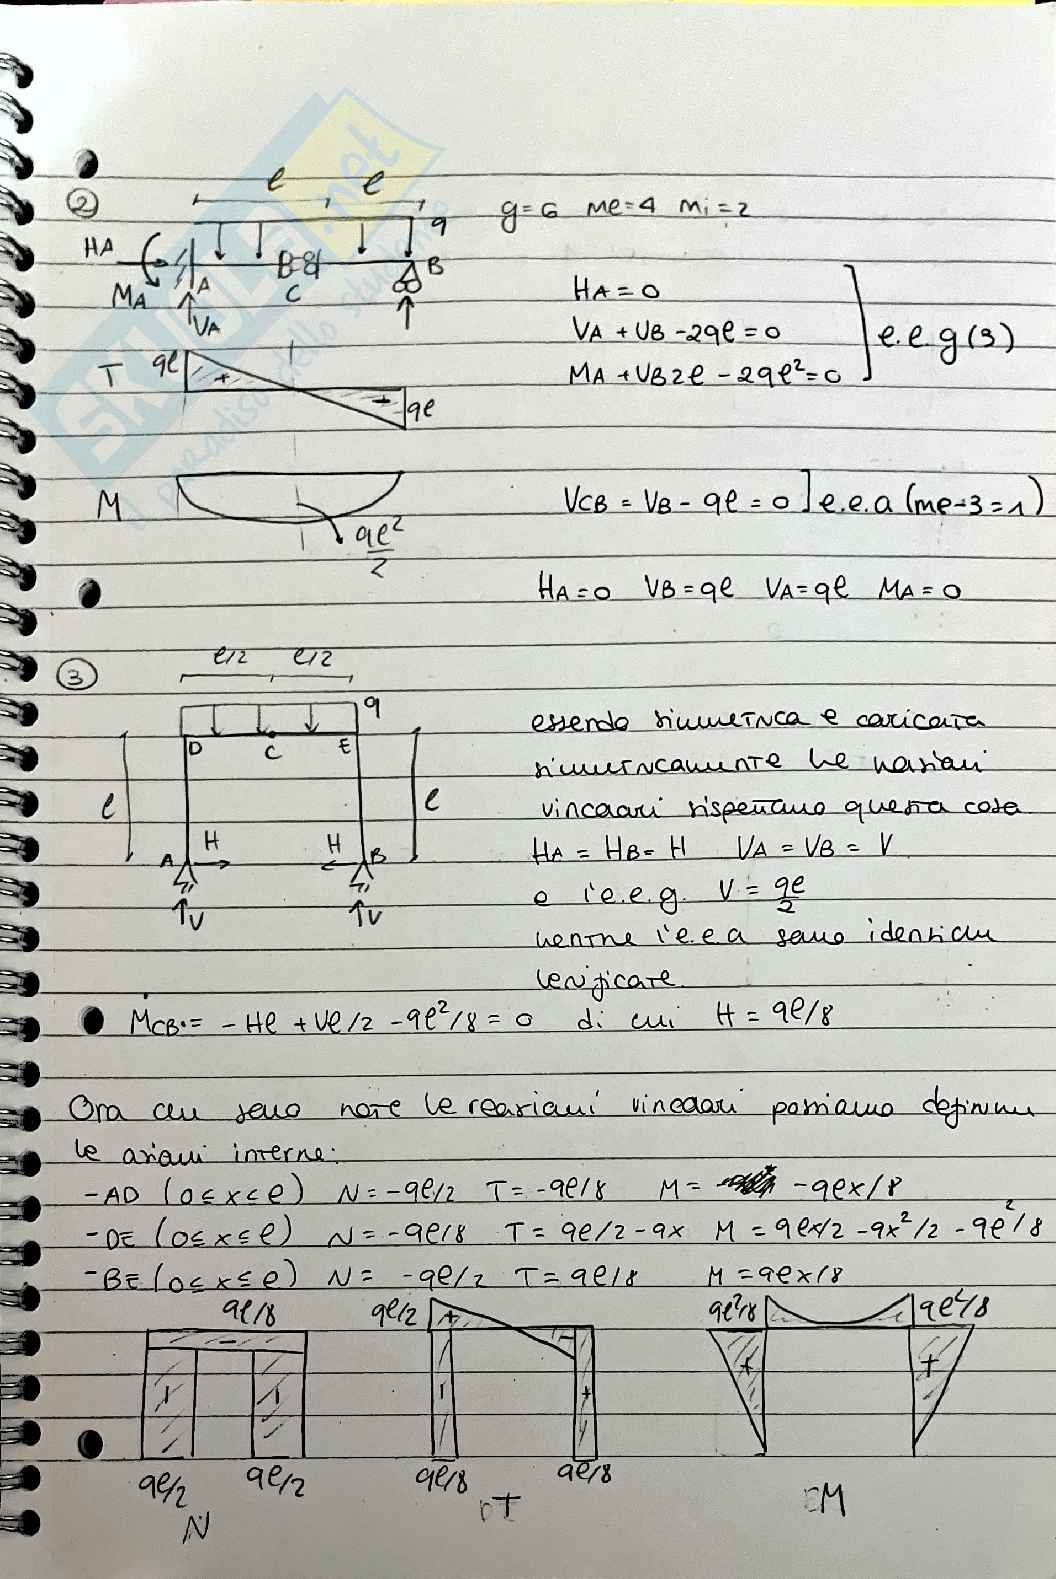 ②
l l
q
g=6 me=4 mi=2
HA
MA
A
VA
C
B
HA=0
VA+VB-2ql=0
MA+VB2l-2ql²=0
e.e.g(3)
T ql + - ql
M
ql²/2
VCB = VB-ql=0 ] e.e.a (me-3=1)
HA=0 VB=ql VA=ql MA=0
③
l/2 l/2
q
D C E
l l
A H H B
V V
essendo simmetrica e caricata
simmetricamente le reazioni
vincolari rispettano questa cosa
HA=HB=H VA=VB=V
e l'e.e.g. V=ql/2
mentre l'e.e.a sono
MCB = -Hl+Vl/2-ql²/8=0 di cui H=ql/8
Ora che sono note le reazioni vincolari possiamo definire
le azioni interne:
-AD (0≤x≤l) N=-ql/2 T=-ql/8 M= -qlx/8
-DE (0≤x≤l) N=-ql/8 T=ql/2-qx M=qlx/2-qx²/2-ql²/8
-BE (0≤x≤l) N=-ql/2 T=ql/8 M=qlx/8
ql/8 ql/2 ql²/8 ql²/8
- + - + +
ql/2 ql/2 ql/8 ql/8
N T M
SKUOLA.net
il paradiso dello studente